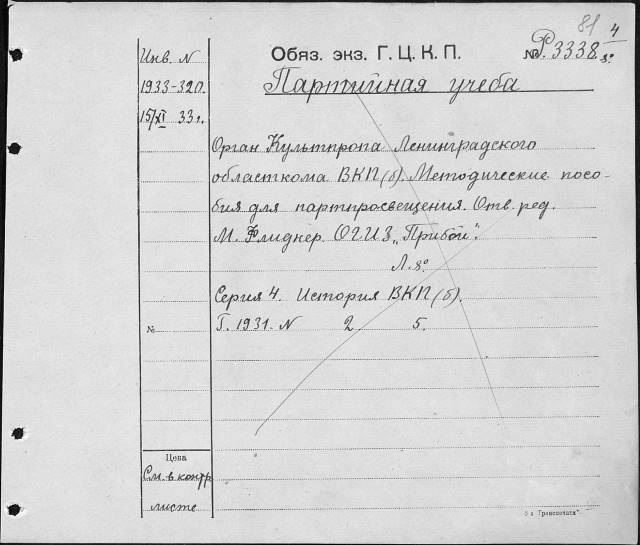 81 4
Инв. N
Обяз. экз. Г. Ц. К. П.
№ Р.3338. 8º
1933-320.
Партийная учеба
15/XI 33 г.
Орган Культпропа Ленинградского
областкома ВКП(б). Методические посо-
бия для партпросвещения. Отв. ред.
М. Флиднер. ОГИЗ „Прибой".
Л. 8º.
Серия 4. История ВКП(б).
№
Г. 1931. N 2 5.
Цена
См. в контр
листе
5 я Транспечать"